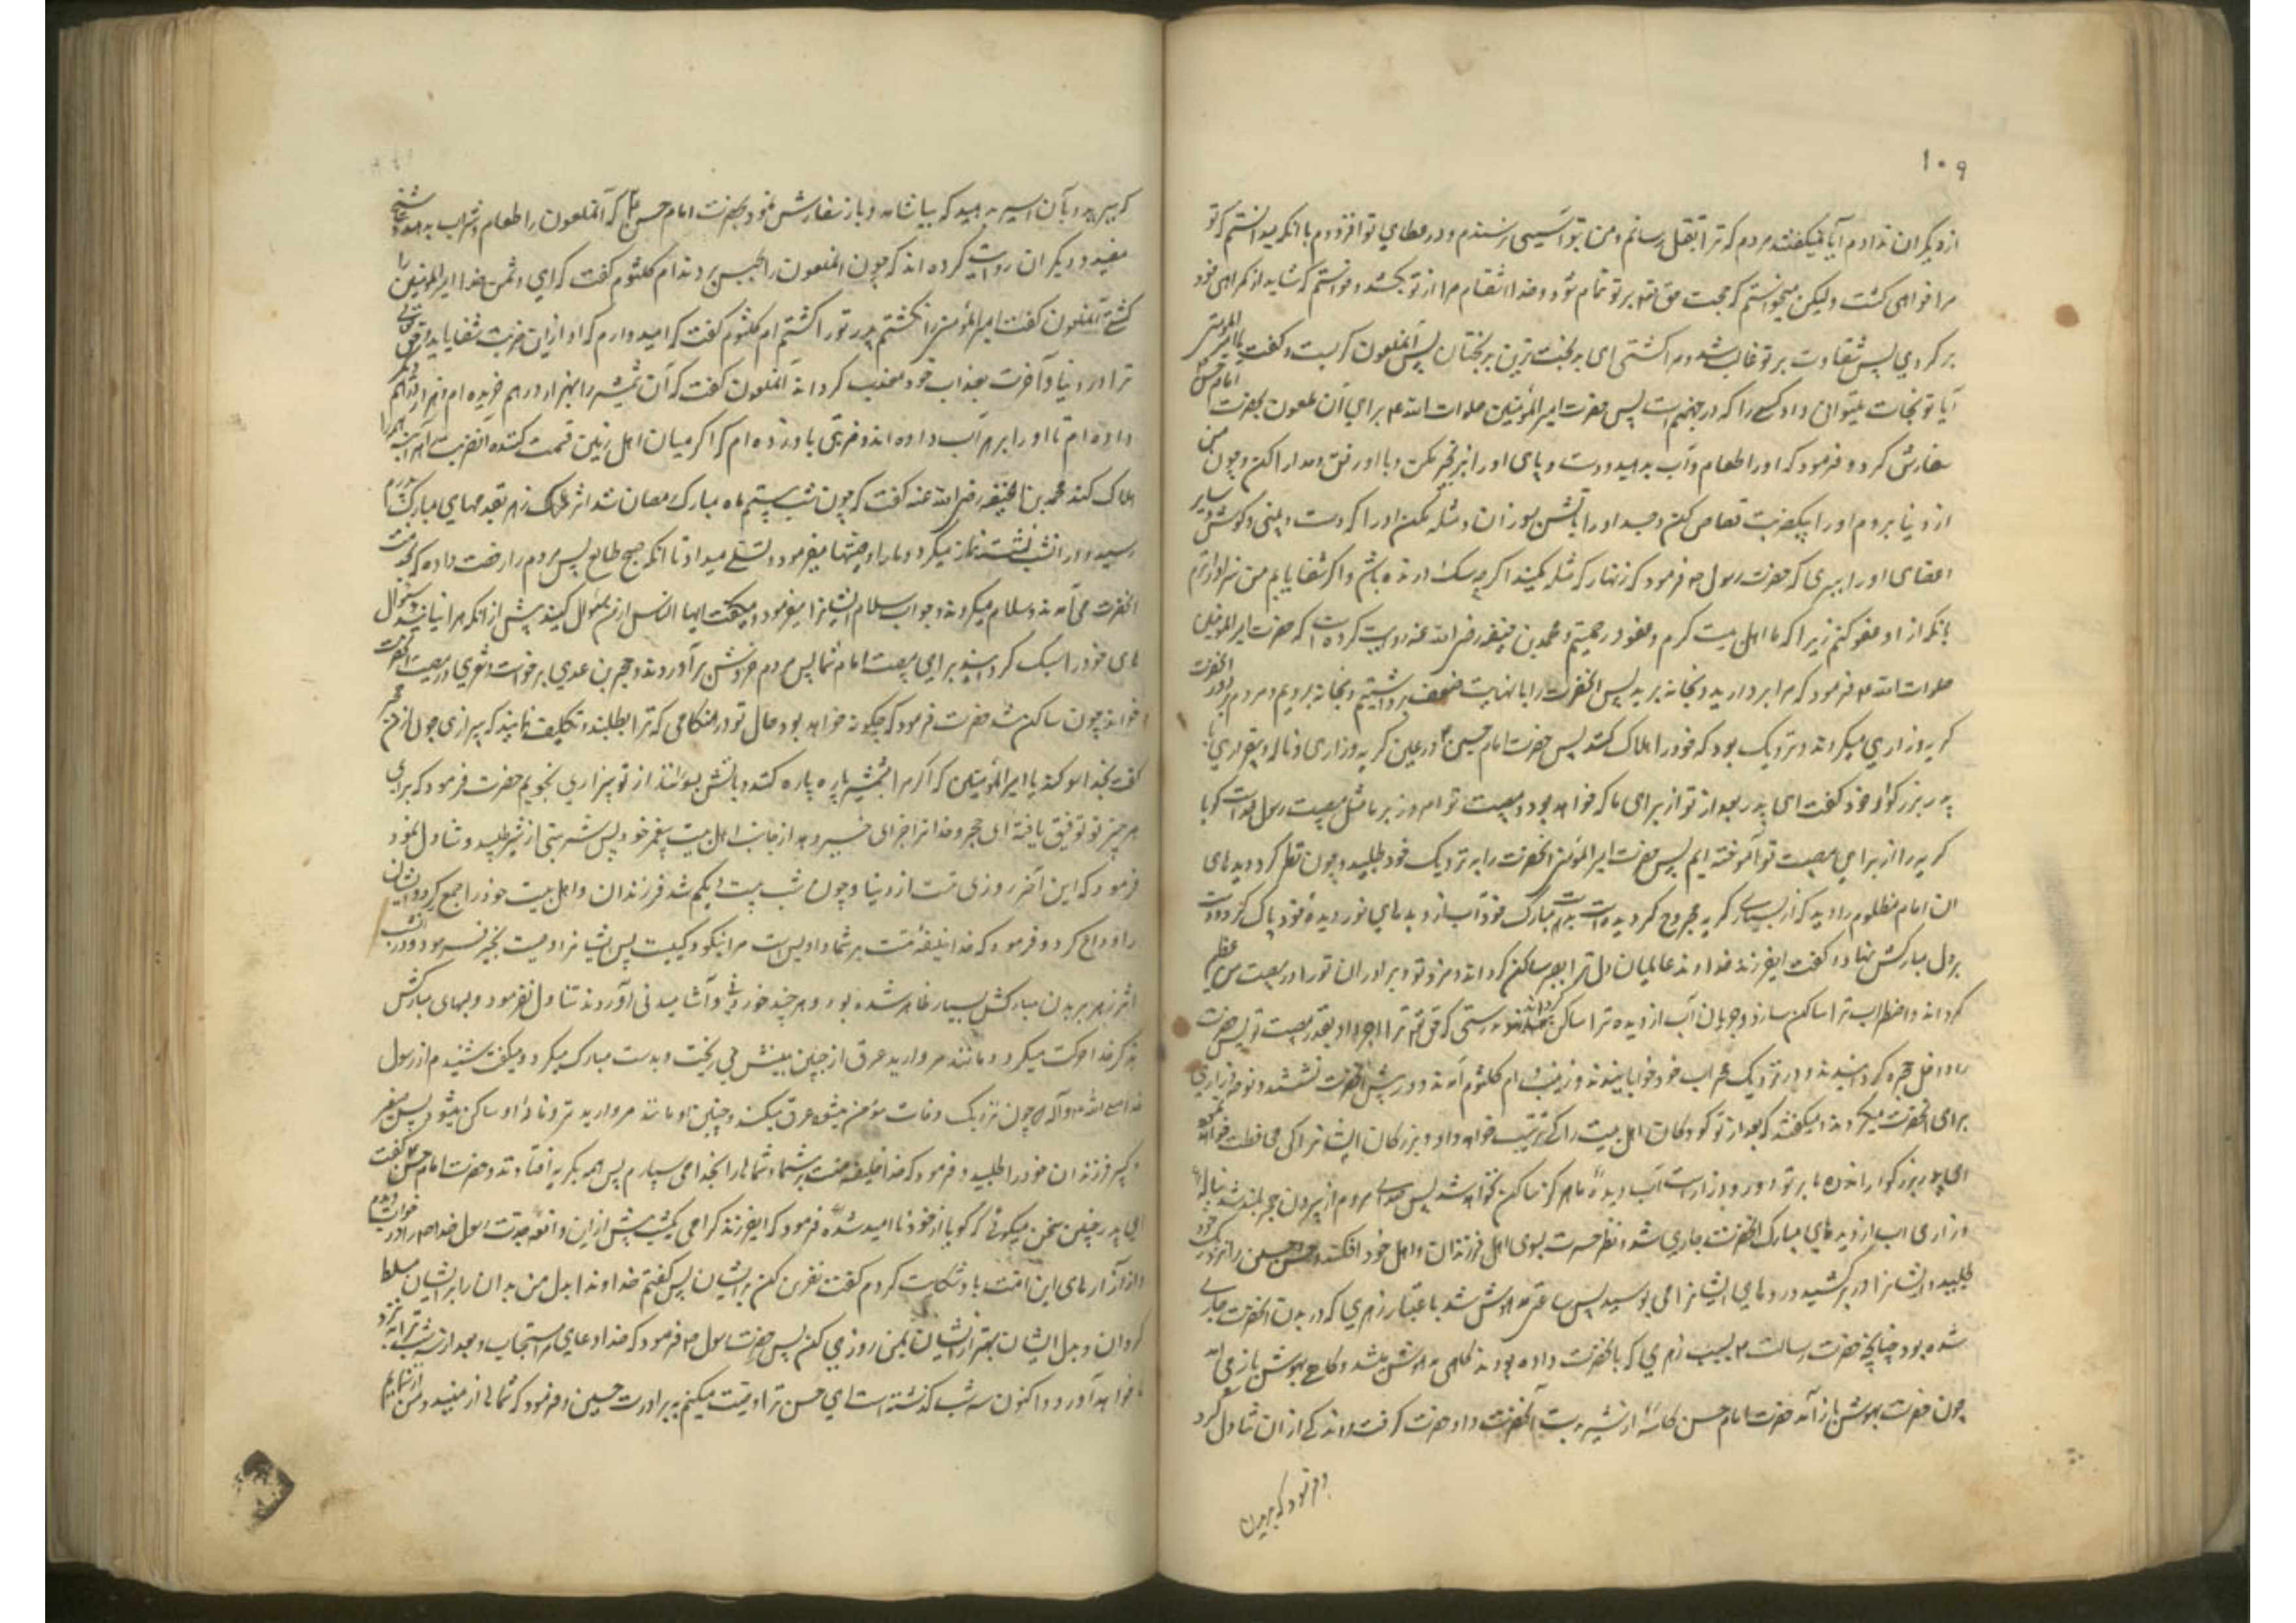 ۱۰۹
از دیگران ندادم آیا نمیگفتند مردم که ترا بقتل رسانم و من بتو آسیبی نرسندم و در عطای تو افزودم با آنکه میدانستم که تو
مرا خواهی کشت ولیکن میخواستم که حجت حق تع بر تو تمام شود و خدا انتقام مرا از تو بکشد و خواستم که شاید از گمراهی خود
بر گردی پس شقاوت بر تو غالب شد و مرا کشتی ای بدبخت ترین بدبختان پس آنملعون گریست و گفت یا امیرالمؤمنین
آیا تو نجات میتوانی داد کسی را که در جهنم است پس حضرت امیرالمؤمنین صلوات الله ع برای آن ملعون بحضرت امام حسن
سفارش کرد و فرمود که او را طعام و آب بدهید و دست و پای او را زنجیر مکن و با او رفق و مدارا کن و چون من
از دنیا بروم او را بیکضربت قصاص کن و جسد او را بآتش بسوزان و مثله مکن او را که دست و بینی و گوش و سایر
اعضای او را ببری که حضرت رسول ص فرمود که زنهار که مثله مکنید اگر چه سگ درنده باشد و اگر شفا یابم من سزاوارترم
بانکه از او عفو کنم زیرا که ما اهل بیت کرم و عفو و رحمتیم و محمد بن حنفیه رضی الله عنه روایت کرده است که حضرت امیرالمؤمنین
صلوات الله ع فرمود که مرا بردارید و بخانه برید پس آنحضرت را با نهایت ضعف برداشتیم و بخانه بردیم و مردم بر دور آنحضرت
گریه و زاری میکردند و نزدیک بود که خود را هلاک کنند پس حضرت امام حسین ع در عین گریه و زاری و ناله و بیقراری با
پدر بزرگوار خود گفت ای پدر بعد از تو از برای ما که خواهد بود و مصیبت تو امروز بر ما مثل مصیبت رسول خداست گویا
گریه را از برای مصیبت تو آموخته ایم پس حضرت امیرالمؤمنین آنحضرت را به نزدیک خود طلبید و چون نظر کرد دیدهای
آن امام مظلوم را دید که از بسیاری گریه مجروح گردیده است بدست مبارک خود آب از دیدهای نور دیده خود پاک کرد و دست
بر دل مبارکش نهاد و گفت ایفرزند خداوند عالمیان دل ترا بصبر ساکن گرداند و مزد تو و برادران تو را در مصیبت من عظیم
گرداند و اضطراب ترا ساکن سازد و جریان آب از دیده ترا ساکن گرداند بدرستی که حق تع ترا اجر داد بقدر مصیبت تو پس حضرت
را داخل حجره گردانیدند و در نزدیک محراب خود خوابانیدند و زینب و ام کلثوم آمدند و در پیش آنحضرت نشستند و نوحه و زاری
برای آنحضرت میکردند و میگفتند که بعد از تو کودکان اهل بیت را که تربیت خواهد داد و بزرگان ایشانرا کی محافظت خواهد نمود
ای پدر بزرگوار اندوه ما بر تو دور و دراز است و آب دیده ما هرگز ساکن نخواهد شد پس صدای مردم از بیرون حجره بلند شد بناله
و زاری و آب از دیدهای مبارک آنحضرت جاری شد و نظر حسرت بسوی اهل و فرزندان و اهل خود افکند و حسن و حسین را نزدیک خود
طلبید و ایشانرا در بر کشید و روهای ایشانرا می بوسید پس ساعتی مدهوش شد باعتبار زهری که در بدن آنحضرت جاری
شده بود چنانچه حضرت رسالت ص بسبب زهری که بآنحضرت داده بودند گاهی مدهوش میشد و گاهی بهوش باز می آمد
چون حضرت بهوش باز آمد حضرت امام حسن کاسه از شیر بدست آنحضرت داد حضرت گرفت و اندکی از ان تناول کرد
و فرمود که ببرید
که ببرید و بآن اسیر بدهید که بیاشامد و باز سفارش نمود بحضرت امام حسن ع که آنملعون را طعام و شراب بدهید و شیخ
مفید و دیگران روایت کرده اند که چون آنملعون را بحبس بردند ام کلثوم گفت که ای دشمن خدا امیرالمؤمنین را
کشتی آنملعون گفت امیرالمؤمنین را نکشتم پدر تو را کشتم ام کلثوم گفت که امیدوارم که او ازین ضربت شفا یابد و حق تعالی
ترا در دنیا و آخرت بعذاب خود معذب گرداند آنملعون گفت که آن شمشیر را بهزار درهم خریده ام و هزار درهم دیگر
داده ام تا او را بزهر آب داده اند و ضربتی باو زده ام که اگر میان اهل زمین قسمت کنند آنضربت را هر آینه همه را
هلاک کند محمد بن الحنفیه رضی الله عنه گفت که چون شب بیستم ماه مبارک رمضان شد اثر زهر بقدمهای مبارک پدرم
رسید و در آنشب نشسته نماز میکرد و ما را وصیتها میفرمود و تسلی میداد تا آنکه صبح طالع شد پس مردم را رخصت داد که بخدمت
آنحضرت می آمدند و سلام میکردند و جواب سلام ایشانرا میفرمود و میگفت ایها الناس از من سؤال کنید پیش از آنکه مرا نیابید و سؤال
های خود را سبک گردانید برای مصیبت امام شما پس مردم خروش برآوردند و حجر بن عدی برخواست و شعری در مصیبت آنحضرت
خواند چون ساکن شد حضرت فرمود که چگونه خواهد بود حال تو در هنگامی که ترا بطلبند و تکلیف نمایند که بیزاری جوئی از من حجر
گفت بخدا سوگند یا امیرالمؤمنین که اگر مرا بشمشیر پاره پاره کنند و بآتش بسوزانند از تو بیزاری نجویم حضرت فرمود که برای
هر چیز تو توفیق یافته ای حجر و خدا ترا جزای خیر دهد از جانب اهل بیت پیغمبر خود پس شربتی از شیر طلبید و تناول نمود
فرمود که این آخر روزی منست از دنیا و چون شب بیست و یکم شد فرزندان و اهل بیت خود را جمع کرد و ایشان
را وداع کرد و فرمود که خدا خلیفه منست بر شما و او بس است مرا نیکو وکیلیست پس ایشانرا وصیت بخیر فرمود و در آنشب
اثر زهر بر بدن مبارکش بسیار ظاهر شده بود و هر چند خوردنی و آشامیدنی آوردند تناول نفرمود و لبهای مبارکش
بذکر خدا حرکت میکرد و مانند مروارید عرق از جبین مبینش می ریخت و بدست مبارک پاک میکرد و میگفت شنیدم از رسول
خدا صلی الله ع و آله که چون نزدیک وفات مؤمن میشود عرق میکند و جبین او مانند مروارید تر و ناله او ساکن میشود پس صغیر
و کبیر فرزندان خود را طلبید و فرمود که خدا خلیفه منست بر شما و شماها را بخدا می سپارم پس همه بگریه افتادند و حضرت امام حسن ع گفت
ای پدر چنین سخن میگوئی که گویا از خود ناامید شده فرمود که ایفرزند گرامی یکشب پیش از این واقعه جدت رسول خدا ص را در خواب دیدم
و از آزارهای این امت باو شکایت کردم گفت نفرین کن بر ایشان پس گفتم خداوندا بدل من بدان را بر ایشان مسلط
گردان و بدل ایشان بهتر از ایشان بمن روزی کن پس حضرت رسول ص فرمود که خدا دعای ترا مستجاب کرد بعد از سه شب ترا بنزد
ما خواهد آورد و اکنون سه شب گذشته است ای حسن ترا وصیت میکنم به برادرت حسین و فرمود که شماها از منید و من از شمایم